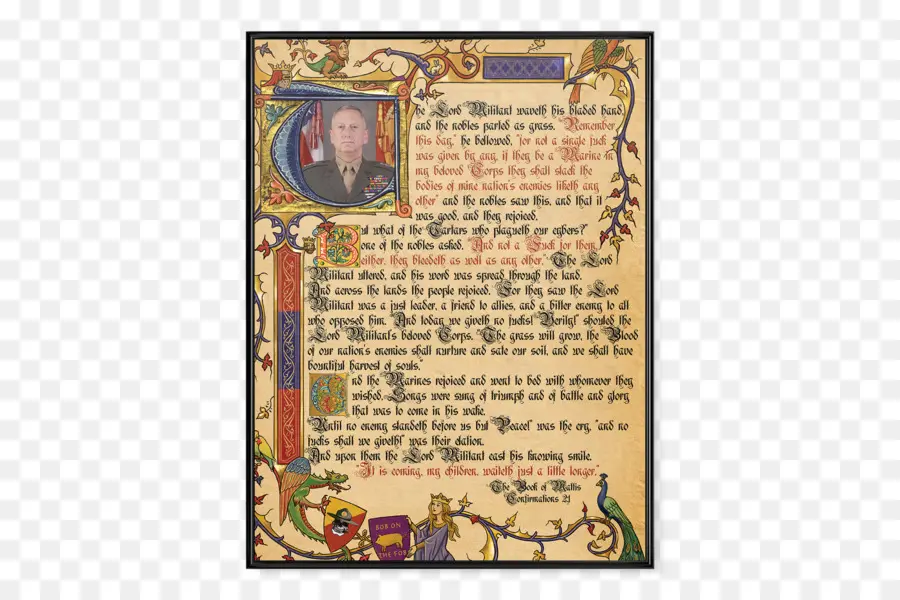 The Lord Militant waveth his bladed hand,
and the nobles parted as grass. "Remember
this day," he bellowed, "for not a single fuck
was given by any, if they be a Marine in
my beloved Corps they shall stack the
bodies of mine nation's enemies liketh any
other" and the nobles saw this, and that it
was good, and they rejoiced.
But what of the Tartars who plagueth our cybers?"
one of the nobles asked. "And not a Fuck for them
either, they bleedeth as well as any other." The Lord
Militant uttered, and his word was spread through the land.
And across the lands the people rejoiced. For they saw the Lord
Militant was a just leader, a friend to allies, and a bitter enemy to all
who opposed him. And today we giveth no fucks! Verily!" shouted the
Lord Militant's beloved Corps. "The grass will grow, the Blood
of our nation's enemies shall nurture and sate our soil, and we shall have
bountiful harvest of souls."
And the Marines rejoiced and went to bed with whomever they
wished. Songs were sung of triumph and of battle and glory
that was to come in his wake.
"Until no enemy standeth before us but Peace!" was the cry, "and no
fucks shall we giveth!" was their elation.
And upon them the Lord Militant cast his knowing smile.
"It is coming, my children, waiteth just a little longer."
The Book of Mattis
Confirmations 21
BOB ON
THE FOB